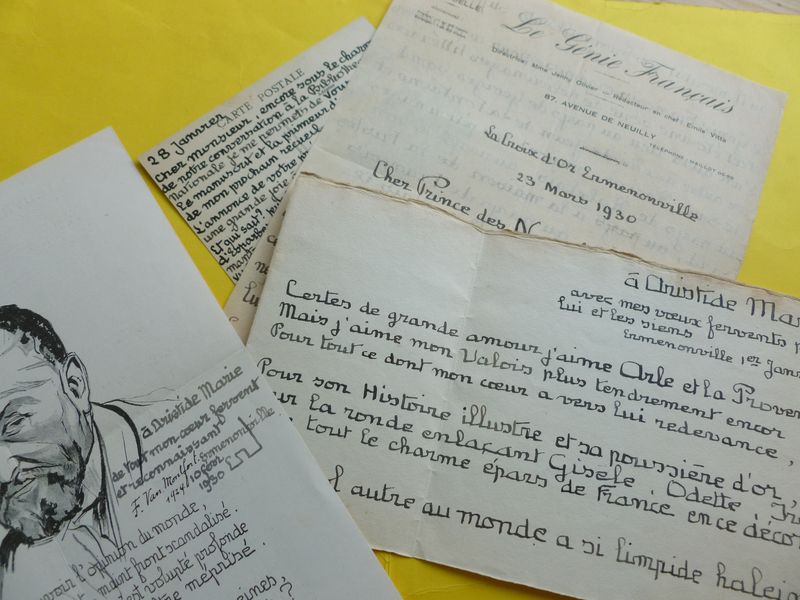 CARTE POSTALE
28 janvier
Cher monsieur encore sous le charme
de notre conversation à la Bibliothè
Nationale je me permets de vous
le manuscrit et la primeur d'
de mon prochain recueil
L'annonce de votre
une grande joie
Et qui sait ?
Le Génie Français
Directrice: Mme Jenny Olivier — Rédacteur en chef: Emile Vitta
87 AVENUE DE NEUILLY
TÉLÉPHONE: MAILLOT
La Croix d'Or Ermenonville
23 Mars 1930
Cher Prince des
à Aristide Mar
avec mes vœux fervents p
lui et les siens
Ermenonville 1er Janv
Certes de grande amour j'aime Arle et la Proven
Mais j'aime mon Valois plus tendrement encor
Pour tout ce dont mon cœur a vers lui redevance,
Pour son Histoire illustre et sa poussière d'or,
ur la ronde enlaçant Gisèle, Odette,
tout le charme épars de France en ce décor
l autre au monde a si limpide
à Aristide Marie
de tout mon cœur fervent
et reconnaissant
Ermenonville
10 févr
1930
F. Van Montfort
1924
voir l'opinion du monde,
front scandalisé.
est volupté profonde
être méprisé.
eines